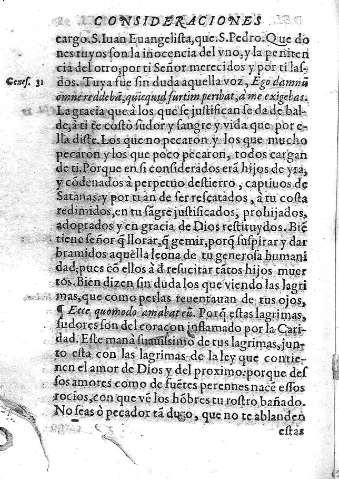 CONSIDERACIONES
cargo. S. Iuan Euangelista, que. S. Pedro. Que do
nes tuyos son la inocencia del vno, y la peniten
cia del otro: por ti Señor merecidos y por ti las-
Genes. 31
dos. Tuya fue sin duda aquella voz, Ego damnũ
omne reddebã, quicquid furtim peribat, à me exigebas.
La gracia que à los que se justifican se da de bal-
de, à ti te costò sudor y sangre y vida que por e-
lla diste. Los que no pecaron y los que mucho
pecaron y los que poco pecaron, todos cargan
de ti. Porque en si considerados erã hijos de yra,
y cõdenados à perpetuo destierro, captiuos de
Satanas: y por ti an de ser rescatados, à tu costa
redimidos, en tu sãgre justificados, prohijados,
adoptados y en gracia de Dios restituydos. Biẽ
tiene señor q̃ llorar, q̃ gemir, porq̃ suspirar y dar
bramidos aquella leona de tu generosa humani
dad, pues cõ ellos à d̃ resucitar tãtos hijos muer
tos. Bien dizen sin duda los que viendo las lagri
mas, que como perlas reuentauan de tus ojos,
¶ Ecce quomodo amabat eũ. Porq̃ estas lagrimas,
sudores son del coraçon inflamado por la Cari-
dad. Este manà suauissimo de tus lagrimas, jun-
to està con las lagrimas de la ley que contie-
nen el amor de Dios y del proximo: porque des
sos amores como de fuẽtes perennes nacẽ essos
rocios, con que vẽ los hõbres tu rostro bañado.
No seas ò pecador tã duro, que no te ablanden
estas